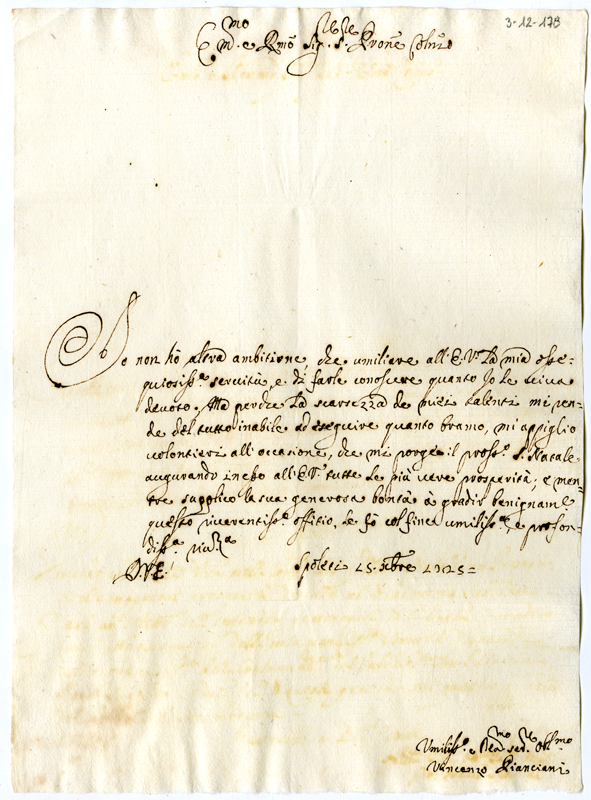 3-12-178
E.mo e Rmo Sig.re S. Pron e Colmo
Io non hò altra ambitione, che umiliare all'E.V. La mia osse=
quiosiss.a servitù, e di farle conoscere quanto Io le viva
devoto. Ma perche La scarsezza de miei talenti mi ren-
de del tutto inabile ad eseguire quanto bramo, mi appiglio
volontieri all'occasione, che mi porge il pross.o S. Natale
augurando in esso all'E.V. tutte le più vere prosperità, e men=
tre supplico la sua generosa bontà à gradir benignam.e
questo riverentiss.o offitio, le fò col fine umiliss.a, e profon=
diss.a riv.a
D.V.E.
Spoleti 15. xbre 1725=
Umiliss.o e Dev.mo ser.re Obl.mo
Vincenzo Pianciani